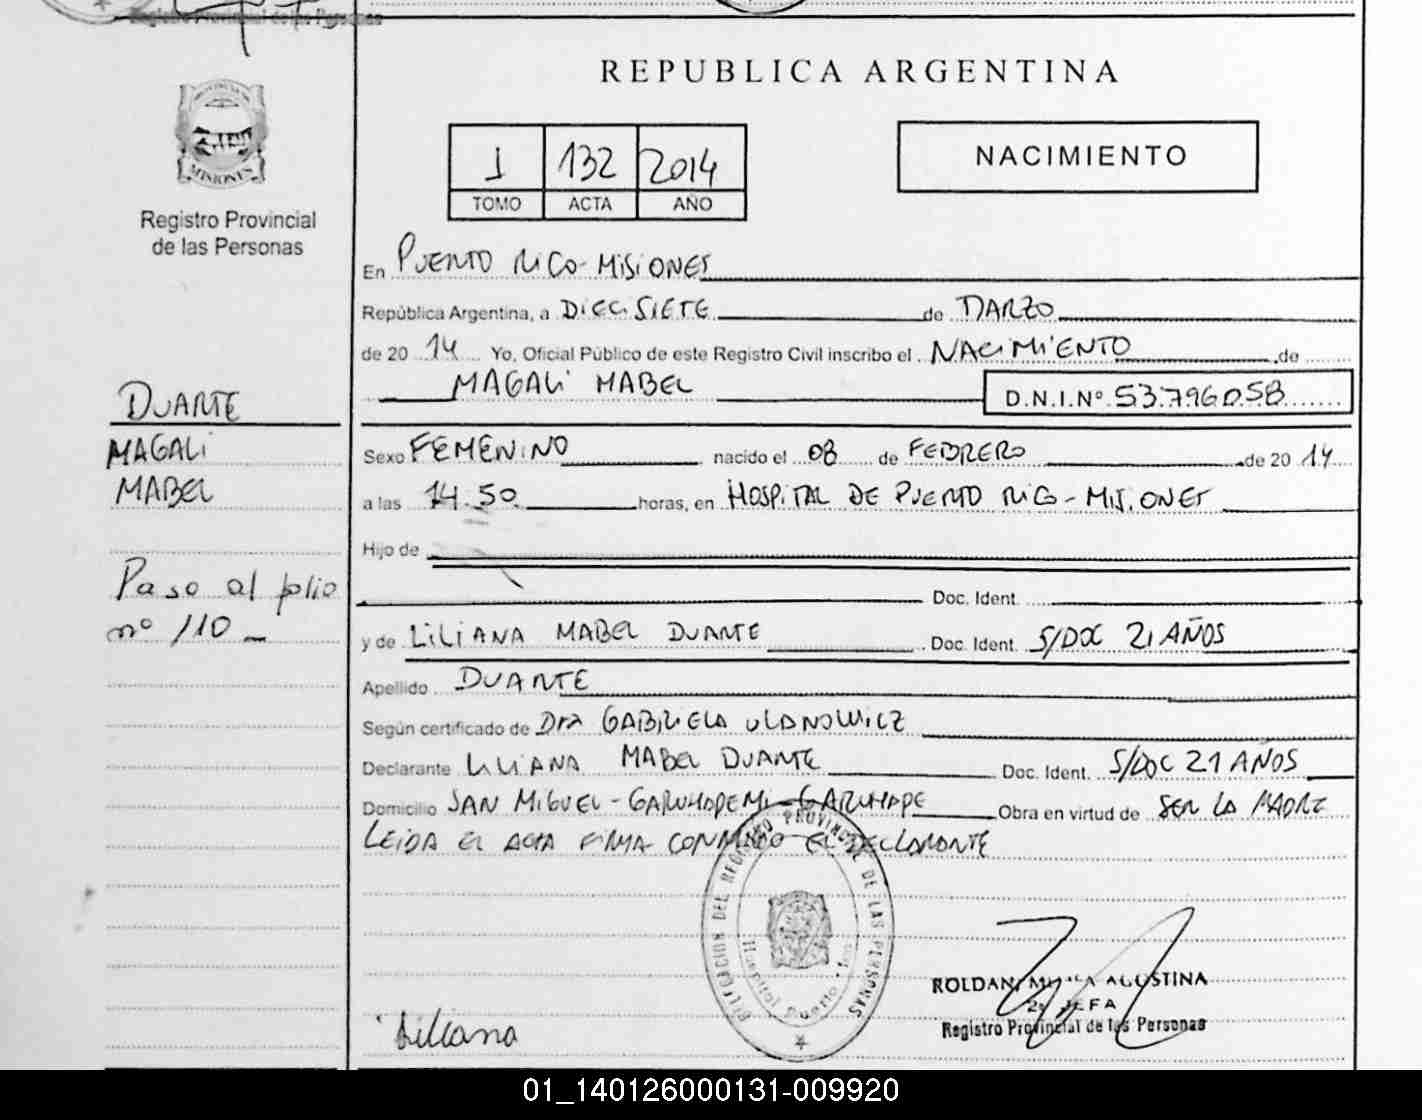 Registro Provincial de las Personas
REPUBLICA ARGENTINA
PROVINCIA DE
MISIONES
Registro Provincial
de las Personas
1 132 2014
TOMO ACTA AÑO
NACIMIENTO
En PUERTO RICO-MISIONES
República Argentina, a DIECISIETE de MARZO
de 20 14 Yo, Oficial Público de este Registro Civil inscribo el NACIMIENTO de
MAGALI MABEL D.N.I.Nº 53.796.058
DUARTE
MAGALI
MABEL
Paso al folio
nº 110
Sexo FEMENINO nacido el 08 de FEBRERO de 20 14
a las 14.50 horas, en HOSPITAL DE PUERTO RICO-MISIONES
Hijo de
Doc. Ident.
y de LILIANA MABEL DUARTE Doc. Ident. S/DOC 21 AÑOS
Apellido DUARTE
Según certificado de DRA GABRIELA ULANOWICZ
Declarante LILIANA MABEL DUARTE Doc. Ident. S/DOC 21 AÑOS
Domicilio SAN MIGUEL-GARUHAPE MI-GARUHAPE Obra en virtud de SER LA MADRE
LEIDA EL ACTA FIRMA CONMIGO EL DECLARANTE
DELEGACION DEL REGISTRO PROVINCIAL DE LAS PERSONAS
Hospital Puerto Rico
Liliana
ROLDAN AGOSTINA
2º JEFA
Registro Provincial de las Personas
01_140126000131-009920